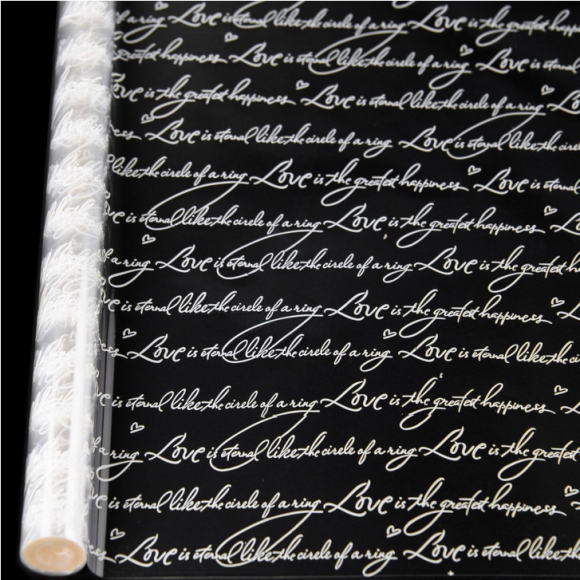 of a ring Love is eternal like the circle of a ring Love is the greatest happiness
greatest happiness Love is eternal like the circle of a ring Love is
Love is the greatest happiness Love is eternal like the circle of a ring Love
Love is eternal like the circle of a ring Love is eternal like the circle
like the circle of a ring Love is the greatest happiness Love is eternal
is eternal like the circle of a ring Love is the greatest happiness Love
a ring Love is eternal like the circle of a ring Love is the greatest
is eternal like the circle of a ring Love is the greatest happiness
Love is eternal like the circle of a ring Love is eternal like the
is eternal like the circle of a ring Love is the greatest happiness
a ring Love is eternal like the circle of a ring Love is the greatest
is eternal like the circle of a ring Love is the greatest happiness
Love is eternal like the circle of a ring Love is eternal like the